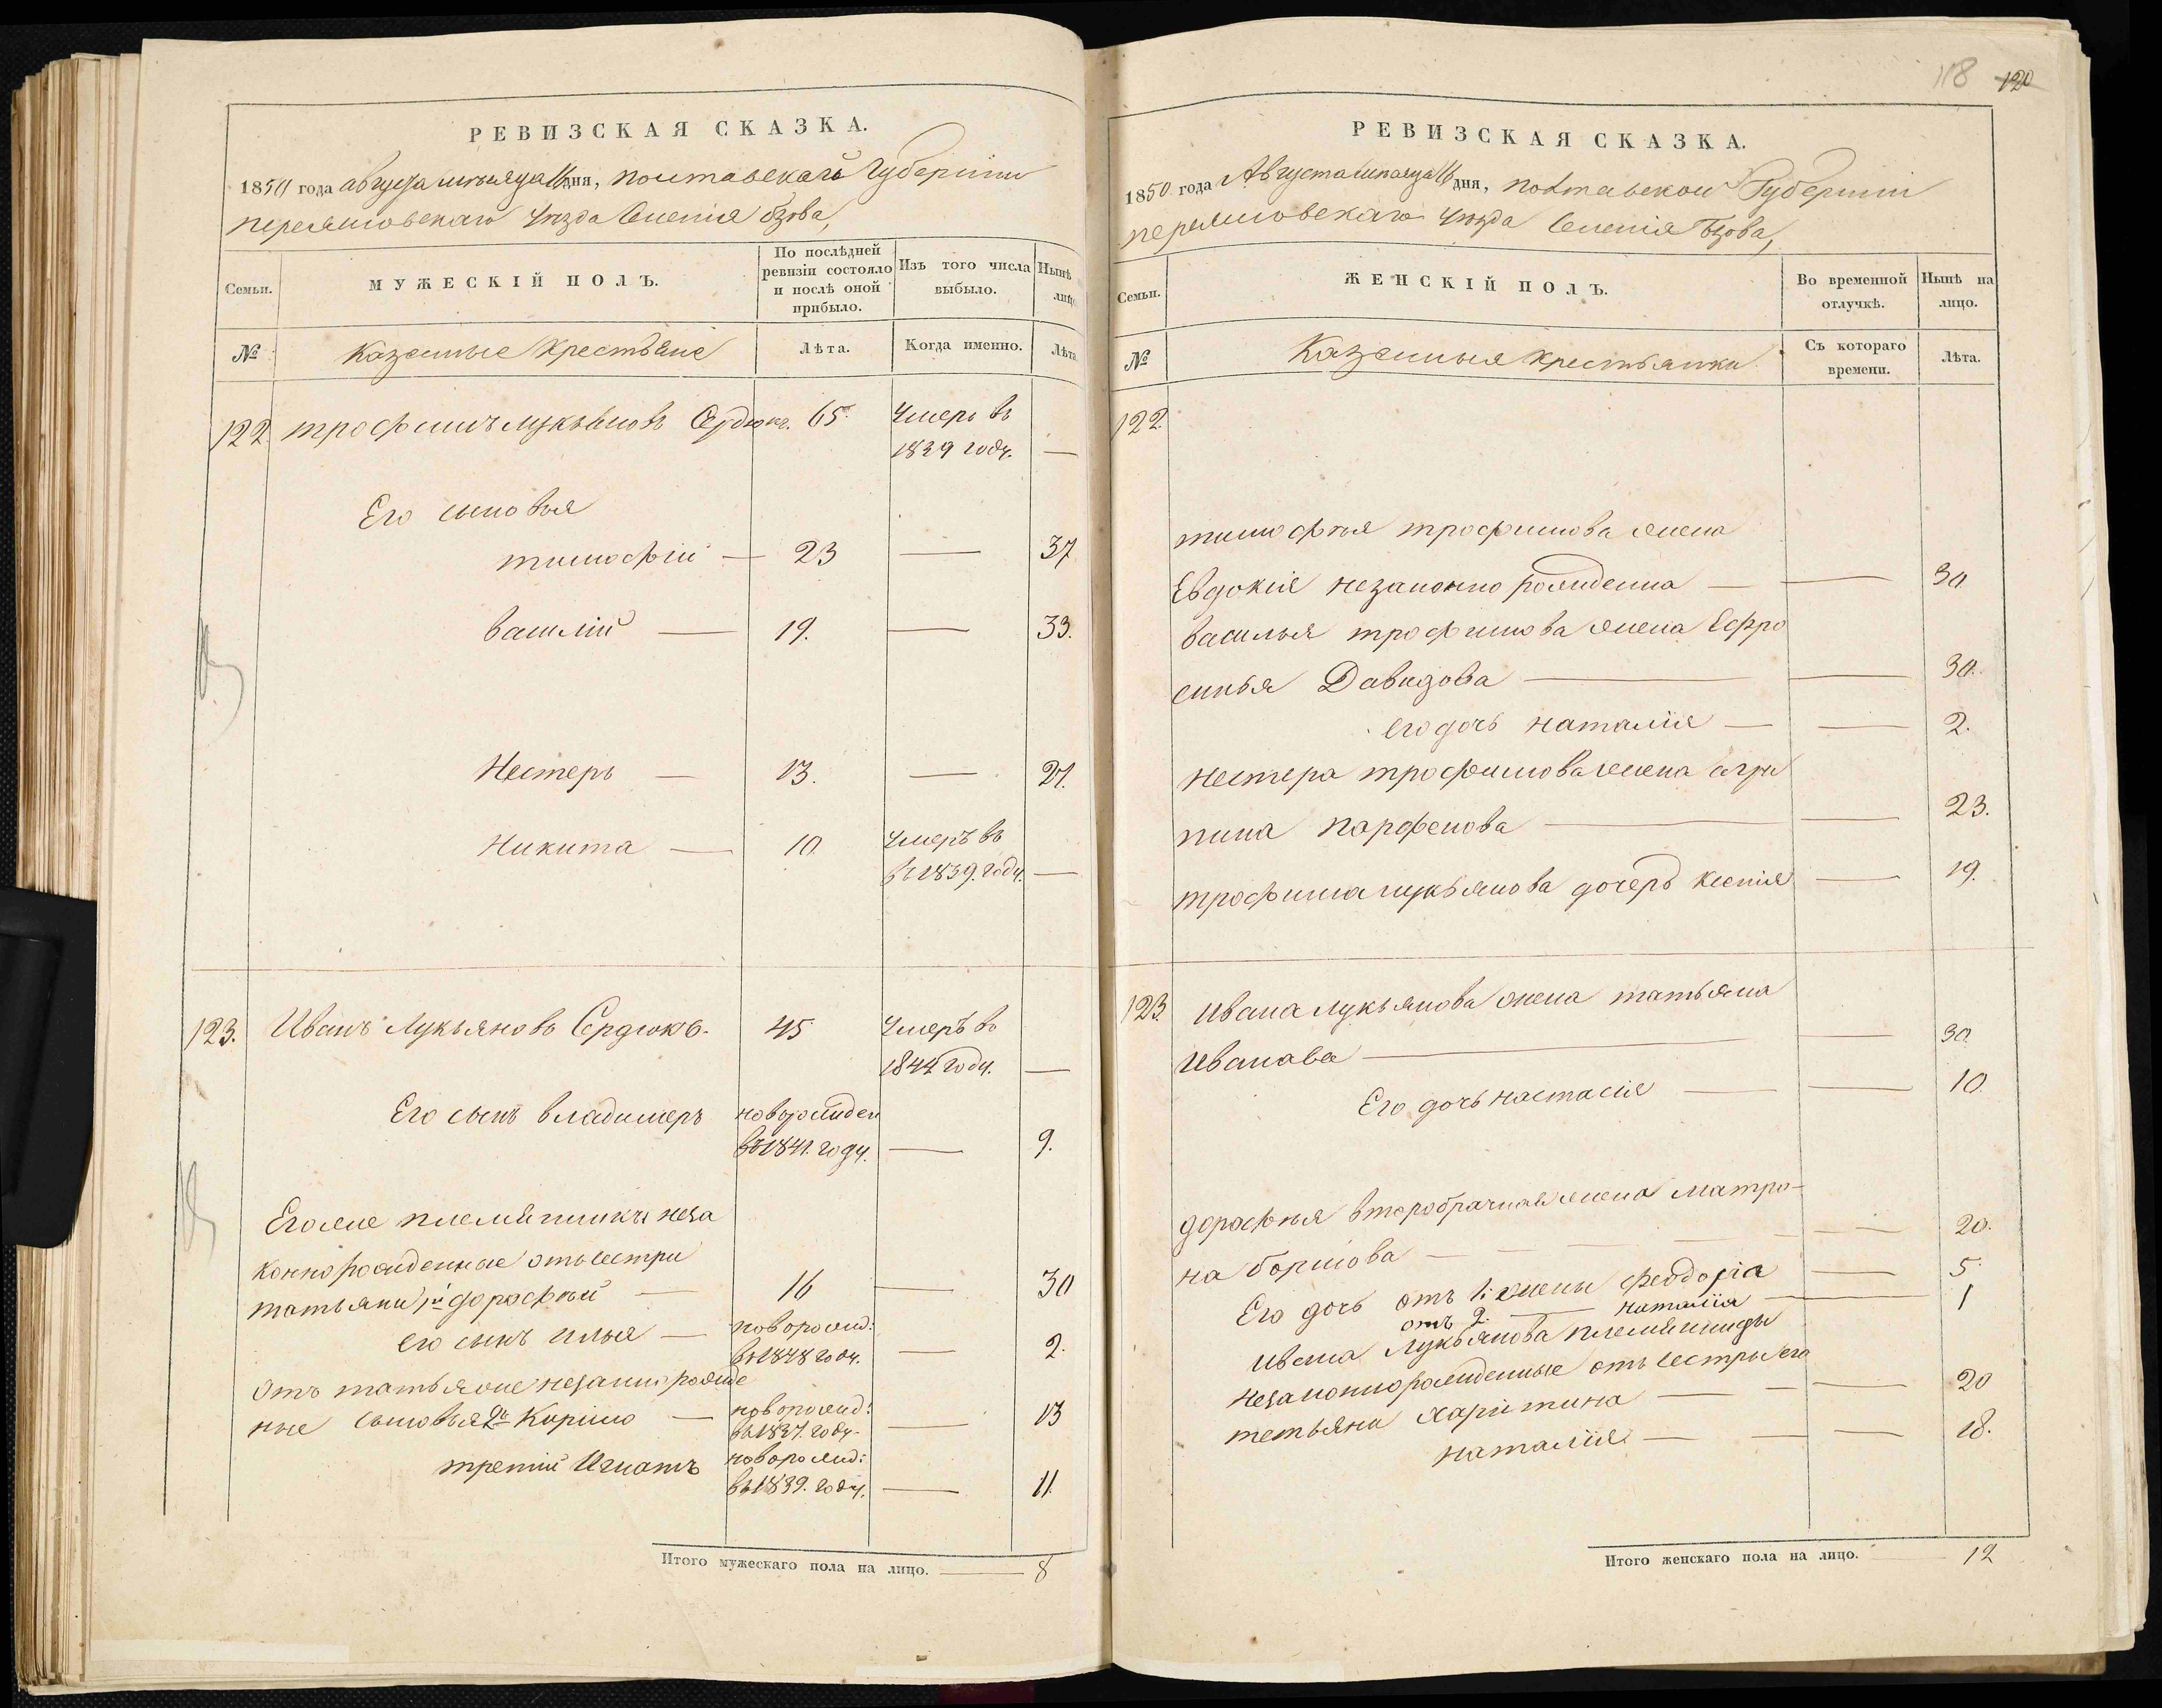 РЕВИЗСКАЯ СКАЗКА.
1850 года августа месяца 16 дня, полтавской Губерніи
переяславскаго уезда Селенія Бзова,
Семьи.
МУЖЕСКІЙ ПОЛЪ.
По послѣдней ревизіи состояло и послѣ оной прибыло.
Изъ того числа выбыло.
Нынѣ на лицо
№
Казенные крестьяне
Лѣта.
Когда именно.
Лѣта
122 трофимъ лукьяновъ Сердюкъ. 65. умеръ въ
1839 году. —
Его сыновья
тимофѣй — 23 — 37
василій — 19. — 33.
Нестеръ — 13. — 27.
Никита — 10. умеръ въ
въ 1839. году. —
123. Иванъ Лукьяновъ Сердюкъ. 45 умеръ въ
1844 году. —
Его сынъ владимеръ новорожден
въ 1841. году. — 9.
Его же племянникъ неза
коннорожденные отъ сестри
татьяни, 1й дорофѣй — 16 — 30
его сынъ илья — новорожд:
въ 1848 году. — 2.
отъ татьяне незаннорожде
ные сыновья 2й Кирило — новорожд:
въ 1837. году. — 13
третій Игнатъ новорожд:
въ 1839. году. — 11.
Итого мужескаго пола на лицо. — 8
118 120
РЕВИЗСКАЯ СКАЗКА.
1850 года Августа месяца 16 дня, полтавской Губерніи
переяславскаго уезда Селенія Бзова,
Семьи.
ЖЕНСКІЙ ПОЛЪ.
Во временной отлучкѣ.
Нынѣ на лицо.
№
Казенныя крестьянки
Съ котораго времени.
Лѣта.
122.
тимофѣя трофимова жена
Евдокія незаконно рожденна — — 30
василья трофимова жена Ефро
синья Давидова — — 30.
его дочь наталія — — 2.
нестера трофимова жена агри
пина парфенова — — 23.
трофима лукьянова дочерь ксенія — 19.
123. ивана лукьянова жена татьяна
иванава — — 30.
Его дочь настасія — — 10.
дорофѣя второбрачная жена матро-
на борисова — — 20.
Его дочь отъ 1: жены феодосіа — 5.
отъ 2. — наталія — 1
ивана лукьянова племянницы
незаконнорожденные отъ сестры его
тетьяни харитина — — 20
наталія — — 18.
Итого женскаго пола на лицо. — 12